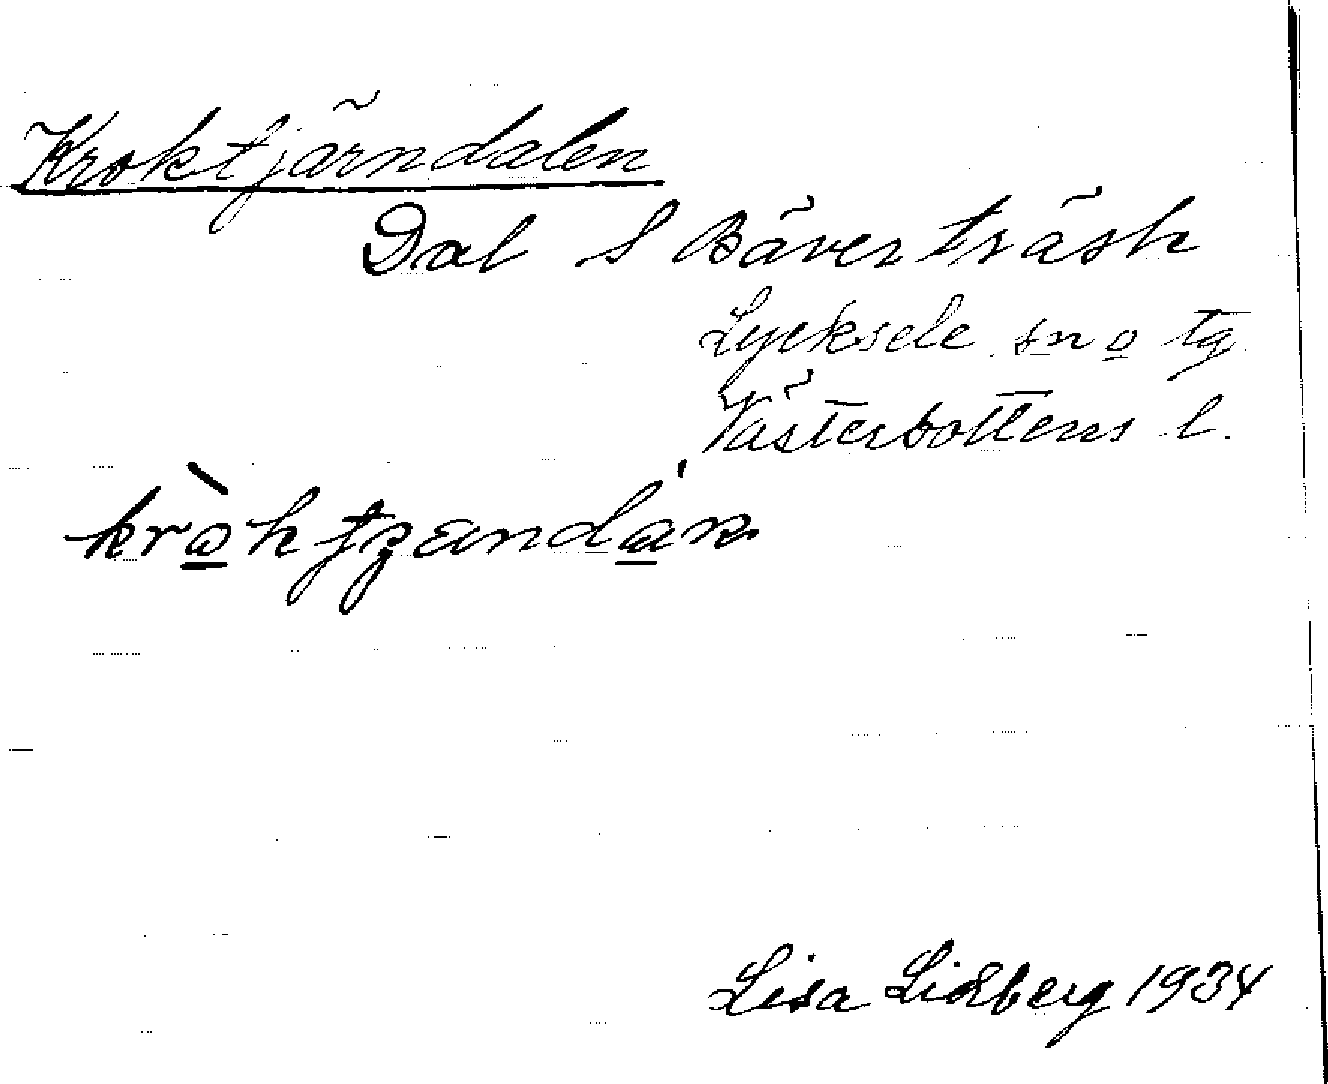 Kroktjärndalen
Dal S Bäverträsk
Lycksele sn o tg
Västerbottens l.
Lisa Lidberg 1934